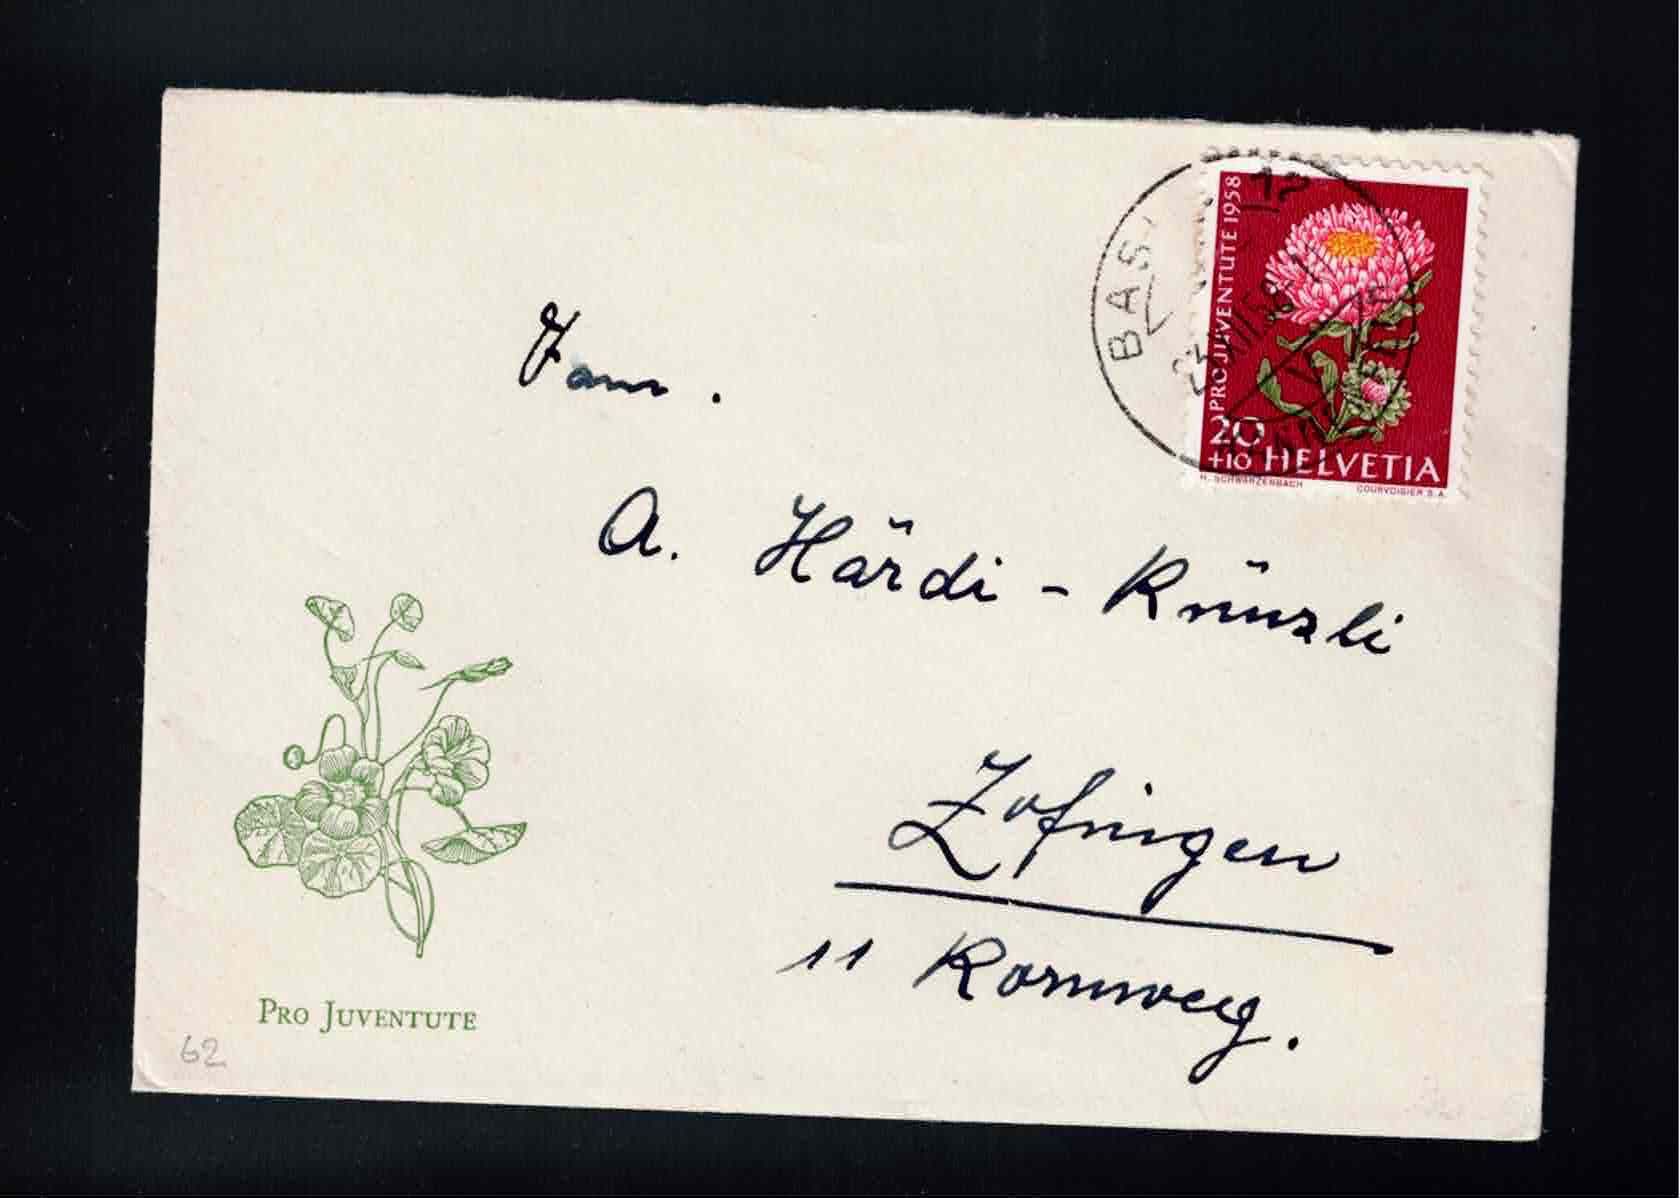 PRO JUVENTUTE 1958
20
+10 HELVETIA
H. SCHWARZENBACH COURVOISIER S.A.
BAS
23.XII.58
Fam.
A. Härdi - Künzli
Zofingen
11 Kornweg.
PRO JUVENTUTE
62